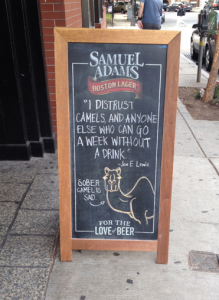 SAMUEL
ADAMS
BOSTON LAGER
"I DISTRUST
CAMELS, AND ANYONE
ELSE WHO CAN GO
A WEEK WITHOUT
A DRINK"
-Joe E. Lewis
SOBER
CAMEL IS
SAD...
FOR THE
LOVE OF BEER